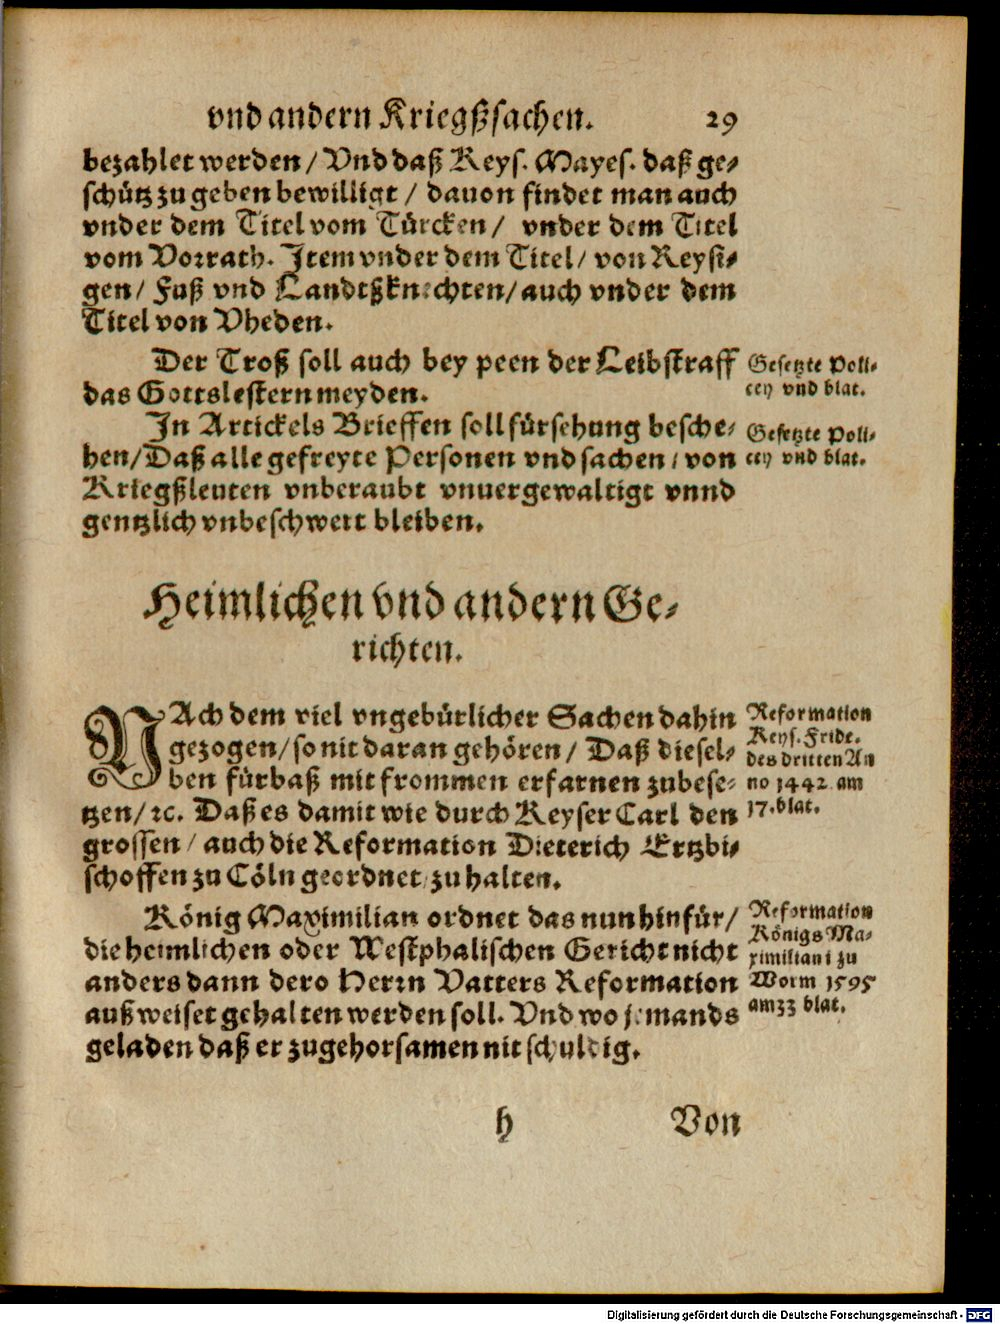 vnd andern Kriegßsachen. 29
bezahlet werden / Vnd daß Keys. Mayes. daß ge-
schütz zu geben bewilligt / dauon findet man auch
vnder dem Titel vom Türcken / vnder dem Titel
vom Vorrath. Item vnder dem Titel / von Reysi-
gen / Fuß vnd Landtßknechten / auch vnder dem
Titel von Vheden.
Der Troß soll auch bey peen der Leibstraff
das Gottslestern meyden.
Gesetzte Poli-
cey vnd blat.
In Artickels Brieffen soll fürsehung besche-
hen / Daß alle gefreyte Personen vnd sachen / von
Kriegßleuten vnberaubt vnuergewaltigt vnnd
gentzlich vnbeschwert bleiben.
Gesetzte Poli-
cey vnd blat.
Heimlichen vnd andern Ge-
richten.
NAch dem viel vngebürlicher Sachen dahin
gezogen / so nit daran gehören / Daß diesel-
ben fürbaß mit frommen erfarnen zubese-
tzen / ꝛc. Daß es damit wie durch Keyser Carl den
grossen / auch die Reformation Dieterich Ertzbi-
schoffen zu Cöln geordnet / zu halten.
Reformation
Keys. Fride.
des dritten An
no 1442 am
17. blat.
König Maximilian ordnet das nun hinfür /
die heimlichen oder Westphalischen Gericht nicht
anders dann dero Herrn Vatters Reformation
außweiset gehalten werden soll. Vnd wo jemands
geladen daß er zugehorsamen nit schuldig.
Reformation
Königs Ma-
ximiliani zu
Worm 1595
am 33 blat.
h Von
Digitalisierung gefördert durch die Deutsche Forschungsgemeinschaft - DFG